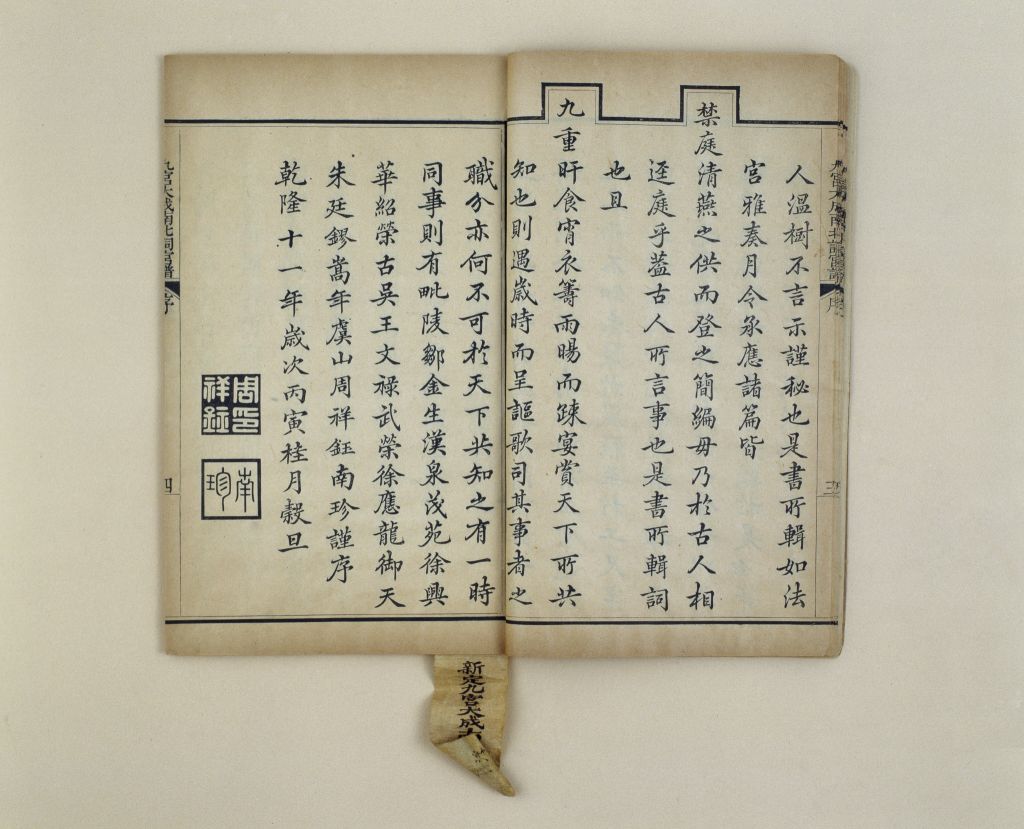 人溫樹不言示謹秘也是書所輯如法
宮雅奏月令承應諸篇皆
禁庭清燕之供而登之簡編毋乃於古人相
逕庭乎蓋古人所言事也是書所輯詞
也且
九重旰食宵衣籌雨暘而疎宴賞天下所共
知也則遇歲時而呈謳歌司其事者之
職分亦何不可於天下共知之有一時
同事則有毗陵鄒金生漢泉茂苑徐興
華紹榮古吳王文祿武榮徐應龍御天
朱廷鏐嵩年虞山周祥鈺南珍謹序
乾隆十一年歲次丙寅桂月穀旦
周祥鈺印
南珍
九宮大成南北詞宮譜
序
四
九宮大成南北詞宮譜
序
三
新定九宮大成